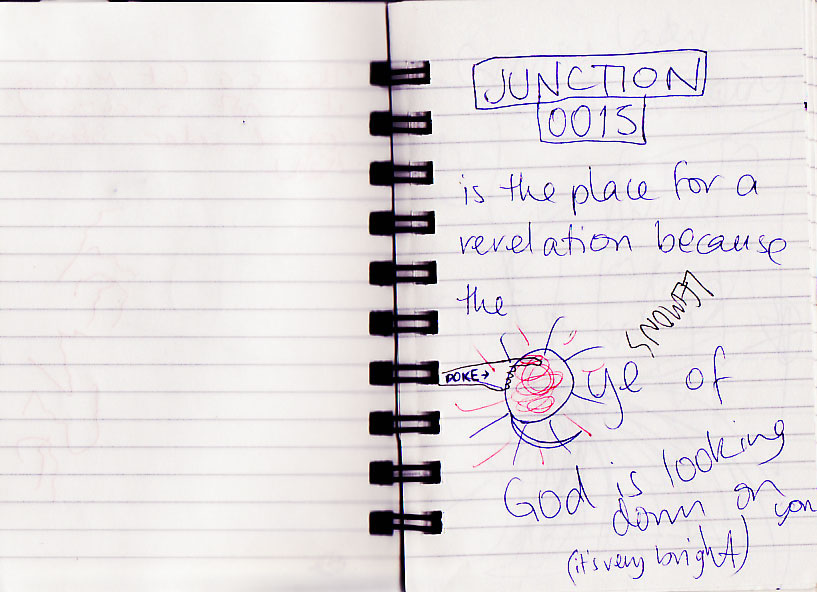 JUNCTION
0015
is the place for a
revelation because
the
LEMONS
POKE→
ye of
God is looking
down on you
(it's very bright)